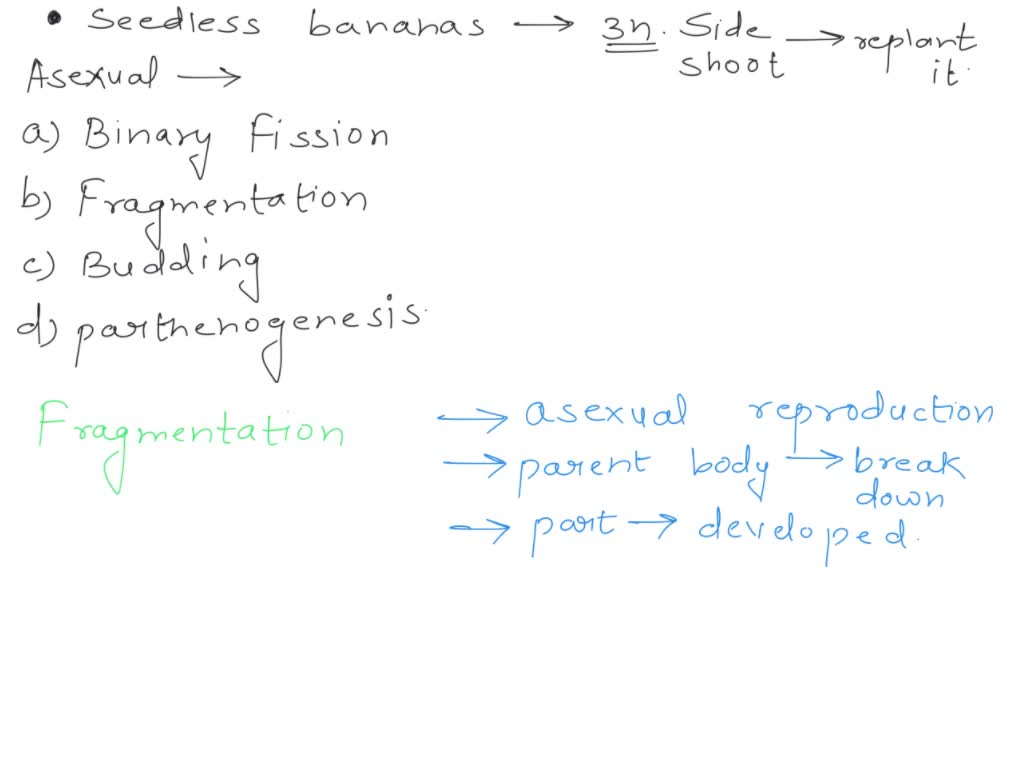 • Seedless bananas → 3n. Side shoot → replant it.
Asexual →
a) Binary fission
b) Fragmentation
c) Budding
d) parthenogenesis.
Fragmentation → asexual reproduction
→ parent body → break down
→ part → developed.